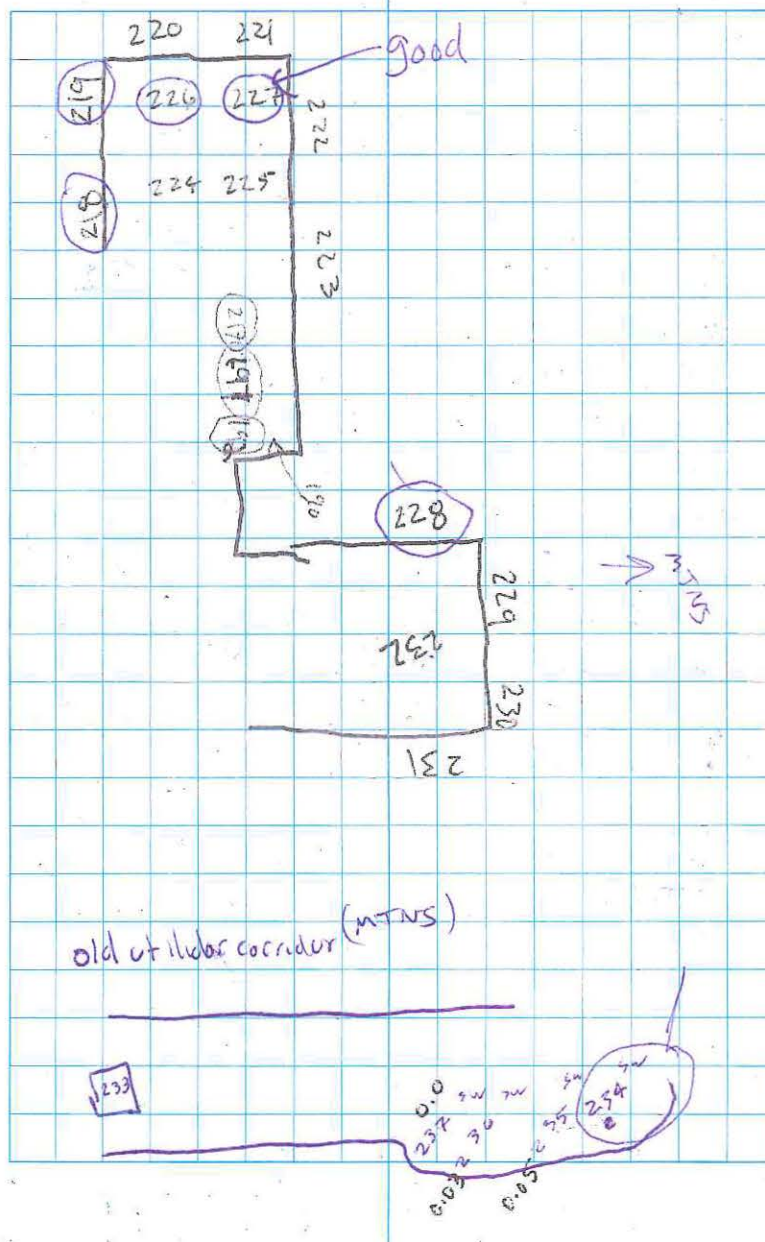 220 221
good
219 226 227
222
218 224 225
223
217
197
190
228
→ MTNS
229
232
230
231
old utilidor corridor (MTNS)
233
0.0 sw sw sw sw
237 236 235 234
0.03 0.05